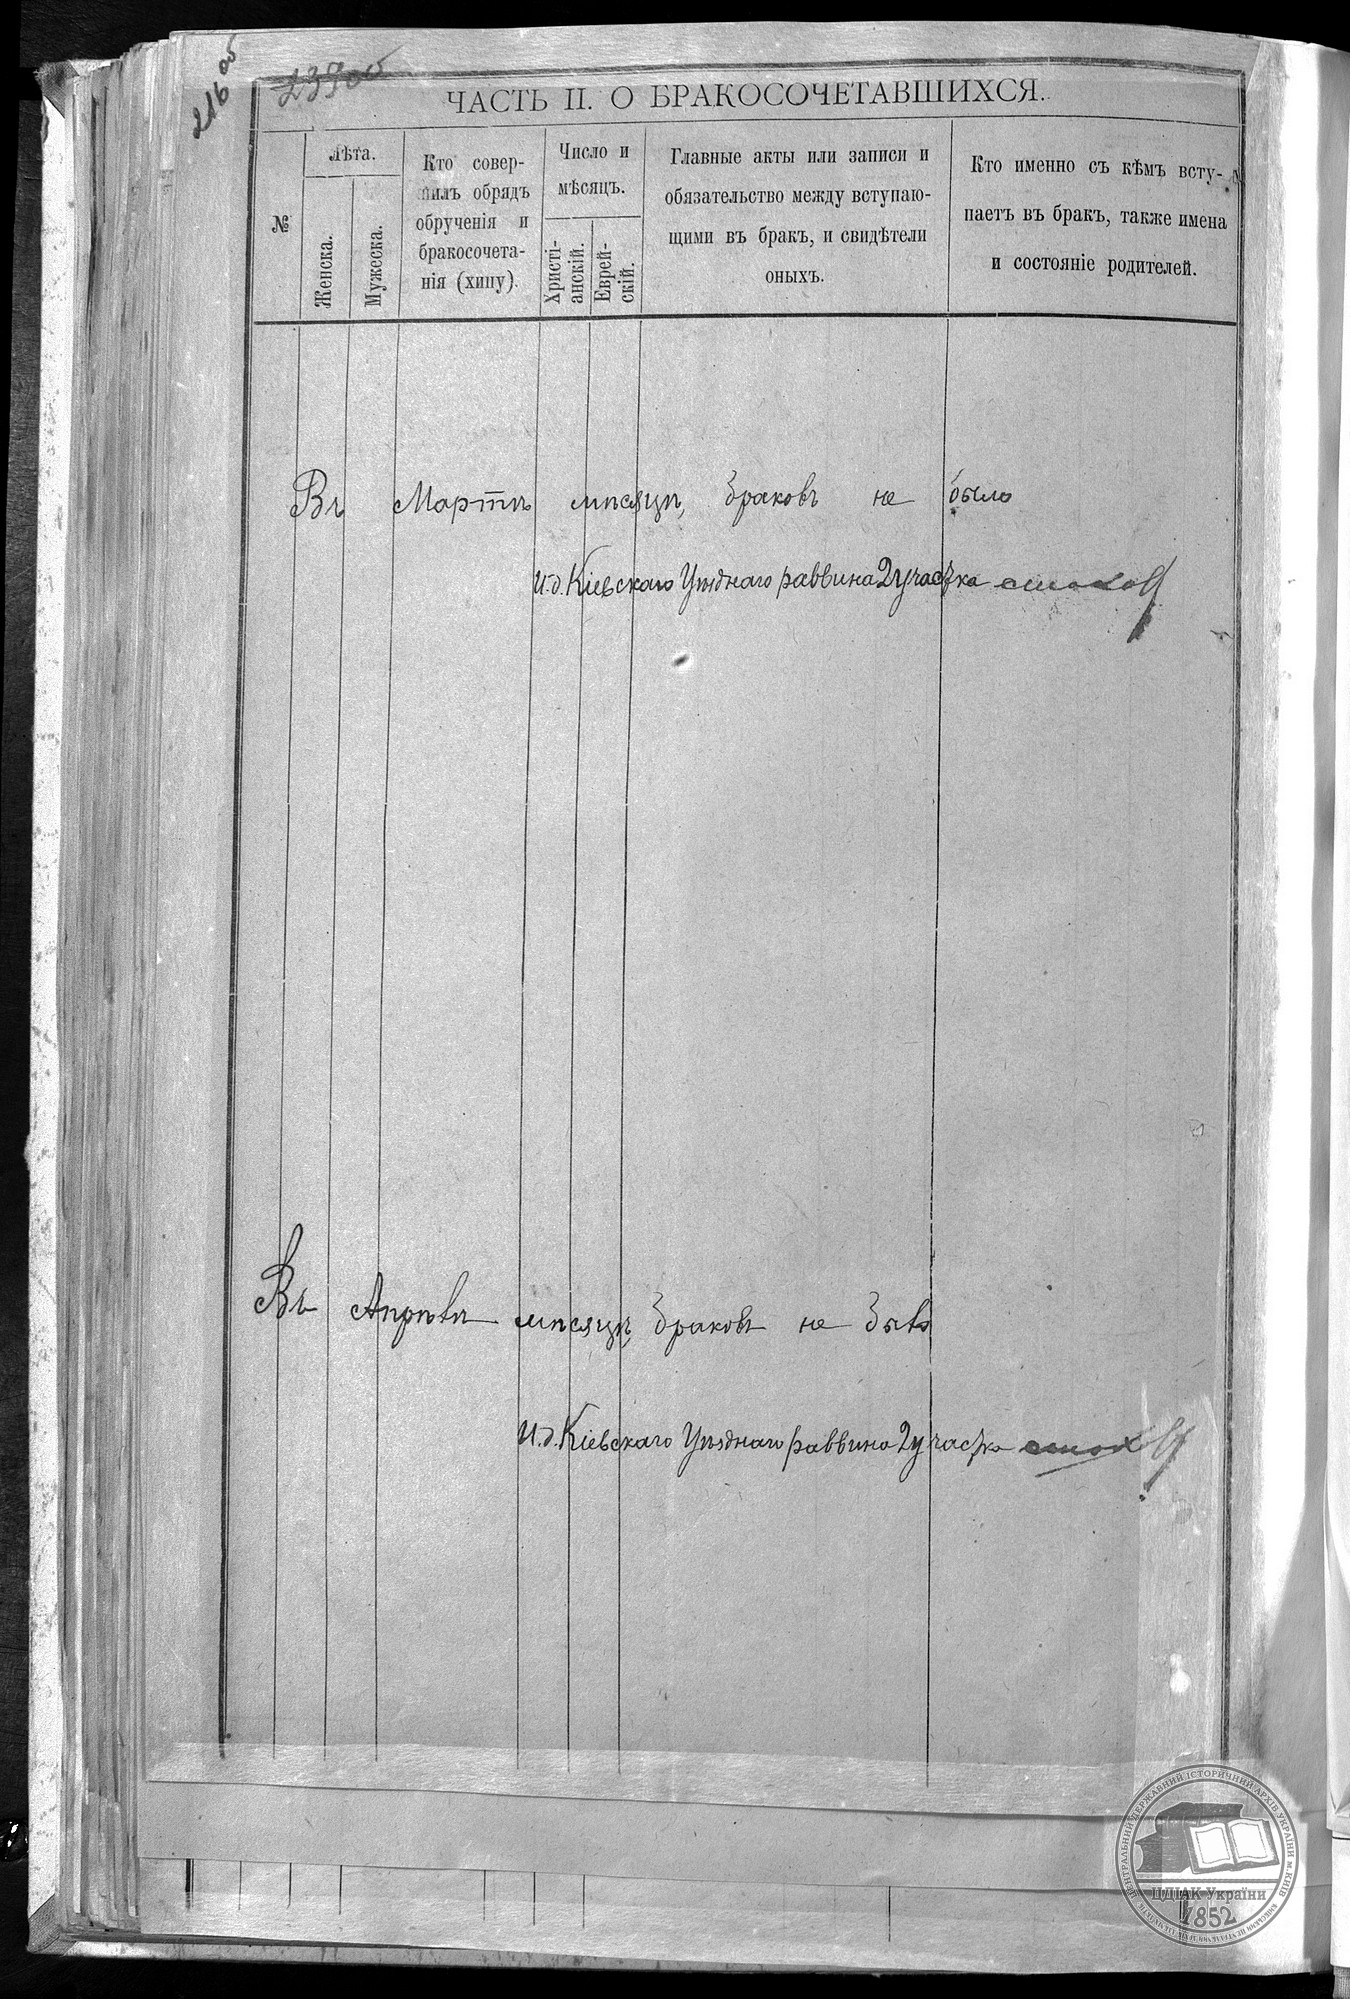 216 об
239 об
ЧАСТЬ II. О БРАКОСОЧЕТАВШИХСЯ.
№
Лѣта.
Женска.
Мужеска.
Кто совер-
шилъ обрядъ
обрученія и
бракосочета-
нія (хипу).
Число и
мѣсяцъ.
Христі-
анскій.
Еврей-
скій.
Главные акты или записи и
обязательство между вступаю-
щими въ бракъ, и свидѣтели
оныхъ.
Кто именно съ кѣмъ всту-
паетъ въ бракъ, также имена
и состояніе родителей.
Въ Мартѣ мѣсяцѣ браковъ не было
И.д. Кіевскаго Уѣзднаго раввина 2 участка
Въ Апрѣлѣ мѣсяцѣ браковъ не было
И.д. Кіевскаго Уѣзднаго раввина 2 участка
ЦЕНТРАЛЬНИЙ ДЕРЖАВНИЙ ІСТОРИЧНИЙ АРХІВ УКРАЇНИ м. КИЇВ
ЦДІАК України
1852